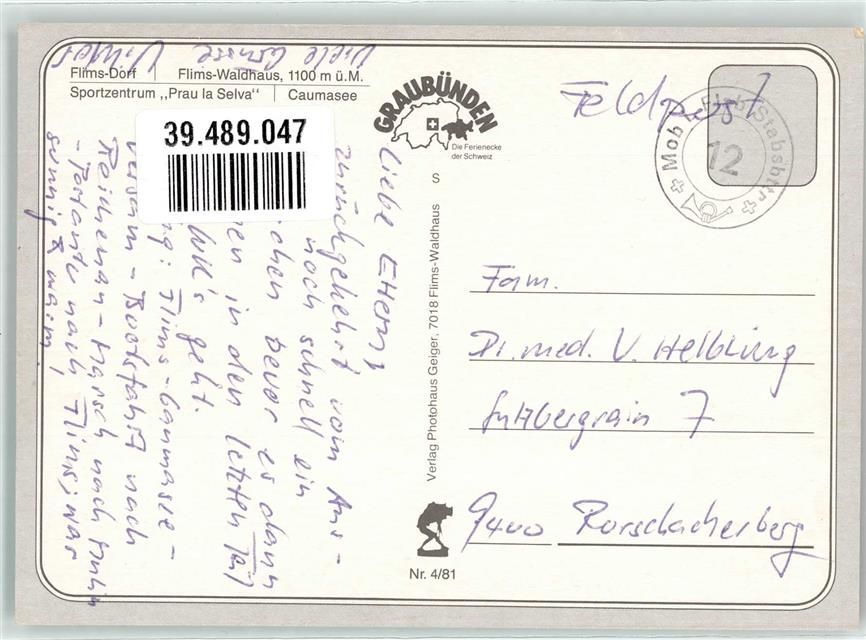 Flims-Dorf | Flims-Waldhaus, 1100 m ü.M.
Sportzentrum „Prau la Selva" | Caumasee
39.489.047
GRAUBÜNDEN
Die Ferienecke
der Schweiz
S
Verlag Photohaus Geiger, 7018 Flims-Waldhaus
Nr. 4/81
Feldpost
Mob L Flab Stabsbttr
12
Fam.
Dr. med. V. Helbling
Sulzbergrain 7
9400 Rorschacherberg
Liebe Eltern,
zurückgekehrt vom Aus-
noch schnell ein
chen bevor es dann
en in den letzten Teil
WK's geht.
ng: Flims - Caumasee -
Versam - Bootsfahrt nach
Reichenau - Marsch nach
- Postauto nach Flims; war
sonnig & warm!
Viele Grüsse